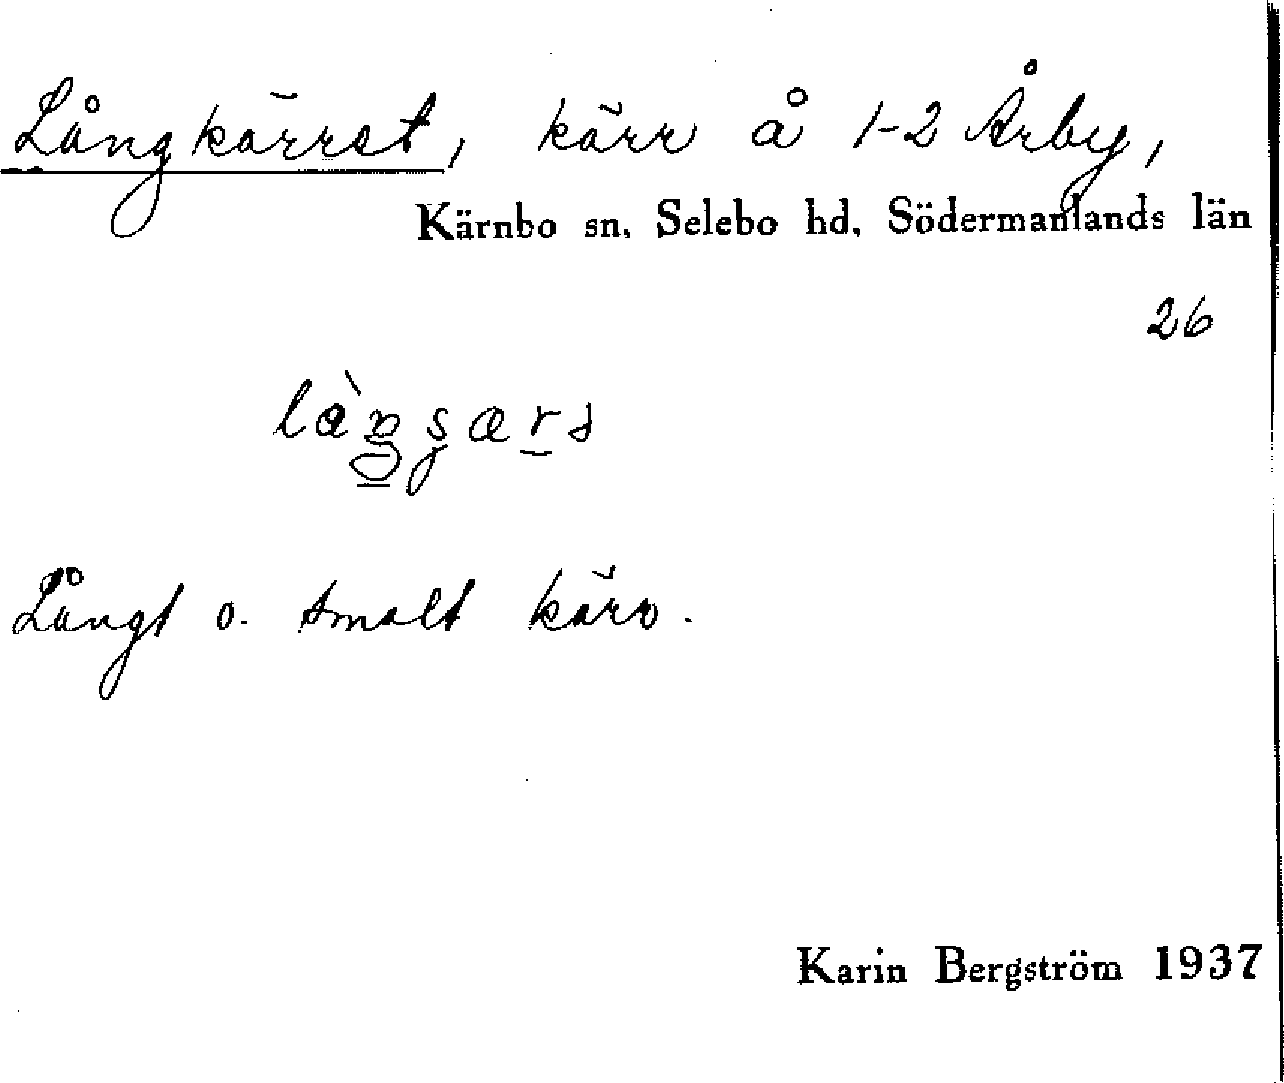 Långkärret, kärr å 1-2 Årby,
Kärnbo sn, Selebo hd, Södermanlands län
26
Långt o. smalt kärr.
Karin Bergström 1937